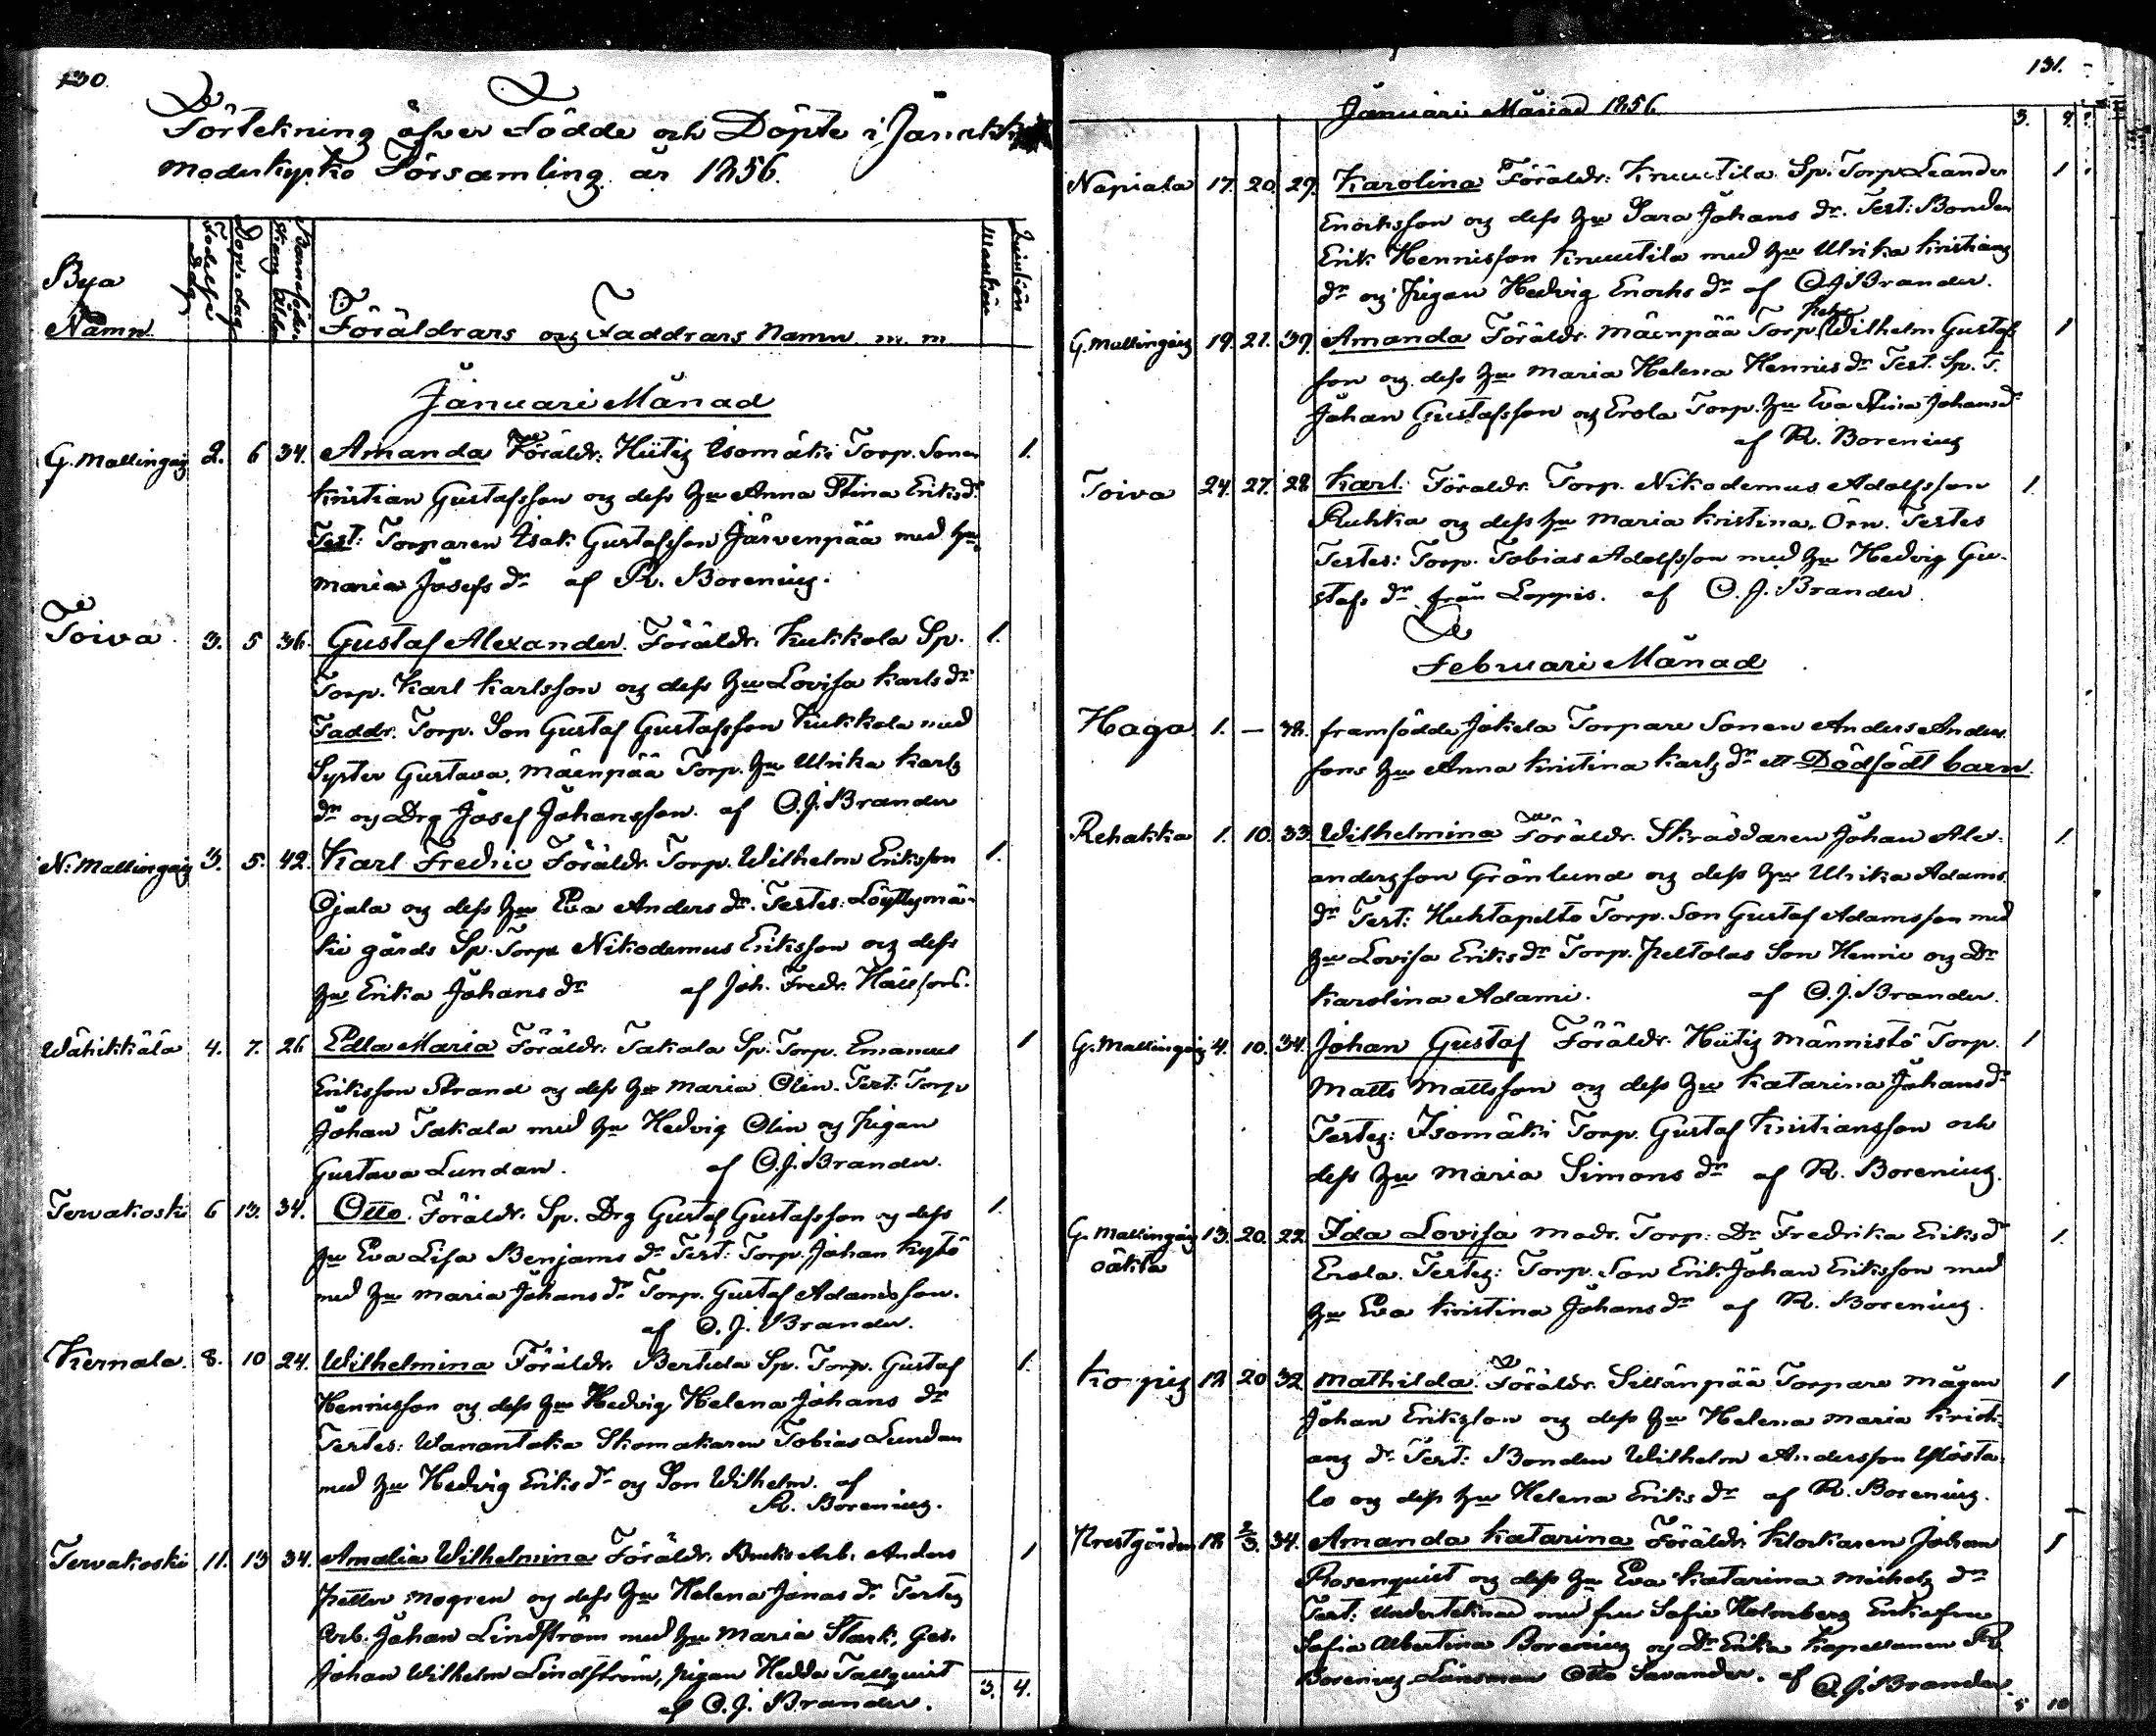 130.
Förtekning öfver Födde och Döpte i Janakkala
moderkyrko Församling år 1856.
Bya
Namn.
Födelse dag
Dop-dag
Föräldrars og Faddrars Namn m. m.
Mankön
Quinkön
Januari Månad
G. Mallingaig 2. 6 34. Amanda Föräldr: Hiitig Isomäki Torp. Sonen 1.
Kristian Gustafsson og dess Hu Anna Stina Eriksdr
Test: Torparen Isak Gustafsson Järvenpää med Hu
Maria Josefs dr af R. Borenius.
Toiva 3. 5 36. Gustaf Alexander. Föräldr. Kukkola Sp. 1.
Torp. Karl Karlsson og dess Hu Lovisa Karls dr
Faddr. Torp. Son Gustaf Gustafsson Kukkola med
Syster Gustava, Mäenpää Torp. Hu Ulrika Karls
dr og Drg Josef Johansson. af O. J. Brander
N. Mallingaig 3. 5. 42. Karl Fredric Föräldr. Torp. Wilhelm Eriksson 1.
Ojala og dess Hu Eva Anders dr. Testes: Löyttymä-
ki gårds Sp. Torp Nikodemus Eriksson og dess
Hu Erika Johans dr af Joh. Fredr. Hällfors.
Wähikkälä 4. 7. 26 Edla Maria Föräldr. Takala Sp. Torp. Emanuel 1
Eriksson Strand og dess Hu Maria Olin. Test: Torp
Johan Takala med Hu Hedvig Olin og Pigan
Gustava Lundan. af O. J. Brander.
Tervakoski 6 13. 34. Otto. Föräldr. Sp. Drg Gustaf Gustafsson og dess 1.
Hu Eva Lisa Benjams dr Test: Torp. Johan Kytö
med Hu Maria Johans dr Torp. Gustaf Adamsson.
af O. J. Brander.
Kernala. 8. 10 24. Wilhelmina Föräldr. Bertula Sp. Torp. Gustaf 1.
Henricsson og dess Hu Hedvig Helena Johans dr
Testes: Wanantaka Skomakaren Tobias Lundan
med Hu Hedvig Eriks dr og Son Wilhelm. af
R. Borenius.
Tervakoski 11. 13 34. Amalia Wilhelmina Föräldr. Bruks Arb. Anders 1
Petter Mogren og dess Hu Helena Jonas dr Testes
Arb. Johan Lindström med Hu Maria Stark, Ges.
Johan Wilhelm Lindström, pigan Hedda Tallquist
af O. J. Brander. 3. 4.
131.
Januari Månad 1856.
Napiala 17. 20. 29. Karolina Föräldr: Knuutila Sp. Torp. Leander 1
Enochsson og dess Hu Sara Johans dr. Test: Bonden
Erik Henricsson Knuutila med Hu Ulrika Kristians
dr og Pigan Hedvig Enochs dr af O. J. Brander.
G. Mallingaig 19. 21. 39. Amanda Föräldr. Mäenpää Torp. Wilhelm Gustafs 1
son og dess Hu Maria Helena Henrics dr Test. Sp. T.
Johan Gustafsson og Erola Torp. Hu Eva Stina Johansdr
af R. Borenius
Toiva 24. 27. 28 Karl. Föräldr. Torp. Nikodemus Adolfsson 1.
Ruhka og dess Hu Maria Kristina Örn. Testes
Testes: Torp. Tobias Adolfsson med Hu Hedvig Gu-
stafs dr från Loppis. af O. J. Brander.
Februari Månad
Haga 1. — 38. framfödde Jokela Torpare Sonen Anders Anders
sons Hu Anna Kristina Karls dr ett Dödfödt barn.
Rehakka 1. 10. 33. Wilhelmina Föräldr. Skräddaren Johan Alex- 1.
andersson Grönlund og dess Hu Ulrika Adams
dr Test: Huhtapelto Torp. Son Gustaf Adamsson med
Hu Lovisa Eriks dr Torp. Peltolas Son Henric og Dr
Karolina Adami. af O. J. Brander.
G. Mallingaig 4. 10. 34. Johan Gustaf Föräldr. Hiitig Männistö Torp. 1
Matts Mattsson og dess Hu Katarina Johansdr
Testes: Isomäki Torp. Gustaf Kristiansson och
dess Hu Maria Simons dr af R. Borenius.
G. Mallingaig 13. 20. 22. Ida Lovisa Modr. Torp: Dr Fredrika Eriksdr 1.
oäkta
Erola. Testes: Torp. Son Erik Johan Eriksson med
Hu Eva Kristina Johans dr af R. Borenius.
Korpis 18 20 32 Mathilda. Föräldr. Sillänpää Torpare mågen 1
Johan Eriksson og dess Hu Helena Maria Kristi-
ans dr Test: Bonden Wilhelm Andersson Ylösta-
lo og dess Hu Helena Eriks dr af R. Borenius.
Prestgården 18 2/3. 34. Amanda Katarina Föräldr. Klockaren Johan 1
Rosenquist og dess Hu Eva Katarina Michels dr
Test: Undertecknad med fru Sofie Holmberg Enkefru
Sofia Albertina Borenius og Dr Erika Kapellanen R.
Borenius Länsman Otto Savander. af O. J. Brander.
5 10